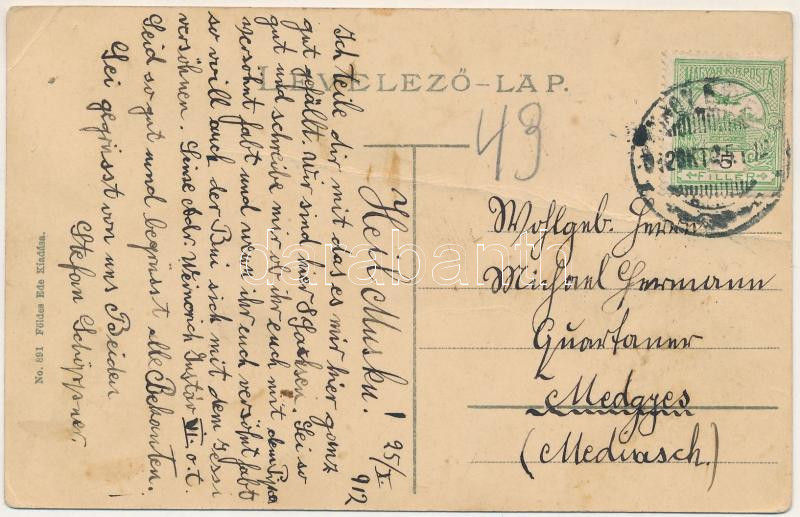 LEVELEZŐ-LAP.
Heil Musku!
25/X 912
Ich teile dir mit das es mir hier ganz
gut gefällt. Wir sind hier 8 Sachsen. Sei so
gut und schreibe mir ob ihr euch mit dem
versöhnt habt und wenn ihr euch versöhnt habt
so will auch der Bui sich mit dem Jessi
versöhnen. Seine Adr. Weinrich Gustav VI. o. t.
Seid so gut und begrüsst alle Bekanten.
Sei gegrüsst von uns Beiden
Stefan Schöppner
43
MAGYAR KIR. POSTA
5
FILLER
Wohlgeb. Herrn
Michael Herrmann
Quartaner
Medgyes
(Mediasch.)
No. 891 Földes Ede Kiadása.
darabanth